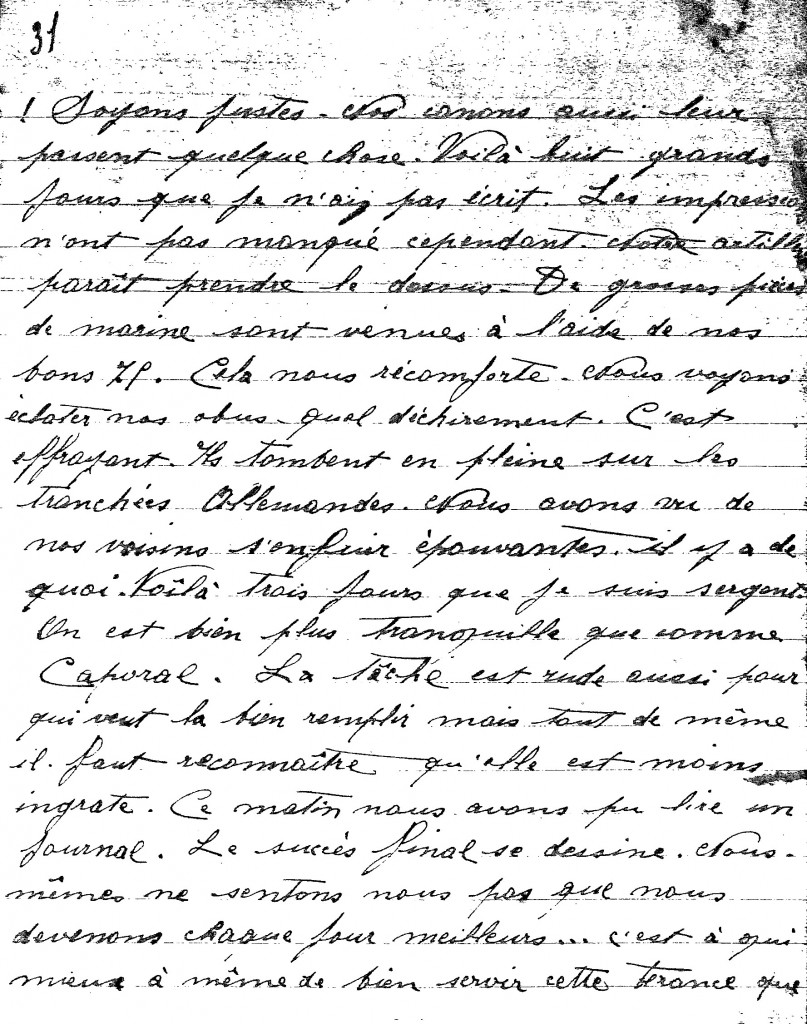 31
! Soyons justes. Nos canons aussi leur
passent quelque chose. Voilà huit grands
jours que je n'ai pas écrit. Les impressio
n'ont pas manqué cependant. Notre artill
paraît prendre le dessus. De grosses pièces
de marine sont venues à l'aide de nos
bons 75. Cela nous récomforte. Nous voyons
éclater nos obus. quel déchirement. C'est
effrayant. Ils tombent en pleine sur les
tranchées Allemandes. Nous avons vu de
nos voisins s'enfuir épouvantés. il y a de
quoi. Voilà trois jours que je suis sergent.
On est bien plus tranquille que comme
Caporal. La tâche est rude aussi pour
qui veut la bien remplir mais tout de même
il faut reconnaître qu'elle est moins
ingrate. Ce matin nous avons pu lire un
journal. Le succès final se dessine. Nous-
mêmes ne sentons nous pas que nous
devenons chaque jour meilleurs... c'est à qui
mieux à même de bien servir cette France que